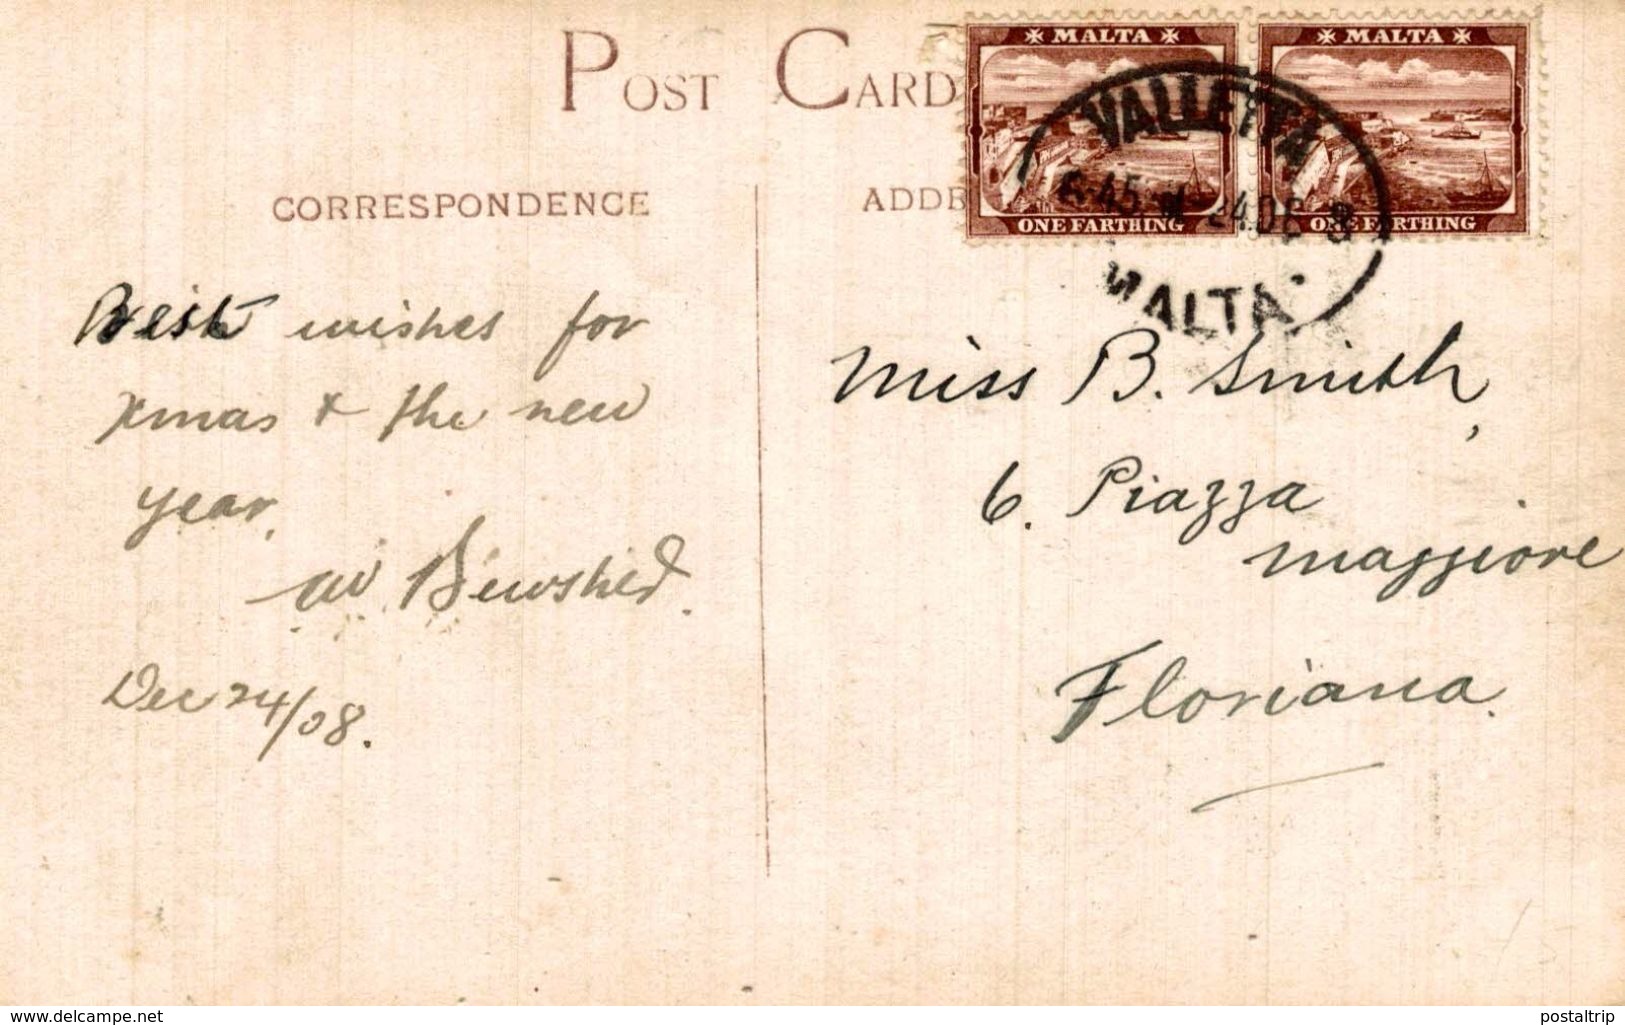 POST CARD
MALTA
ONE FARTHING
MALTA
ONE FARTHING
VALLETTA
24 DE 8
MALTA
CORRESPONDENCE
ADDR
Best wishes for
Xmas & the new
year.
Dec 24/08.
Miss B. Smith,
6. Piazza
maggiore
Floriana.
www.delcampe.net
postaltrip